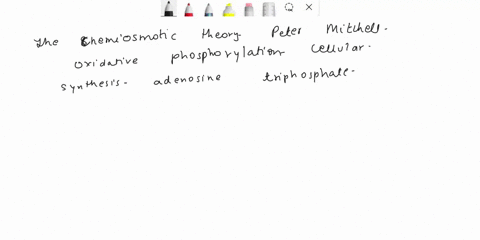 The Chemiosmotic theory. Peter Mitchell.
oxidative phosphorylation cellular.
synthesis. adenosine triphosphate.